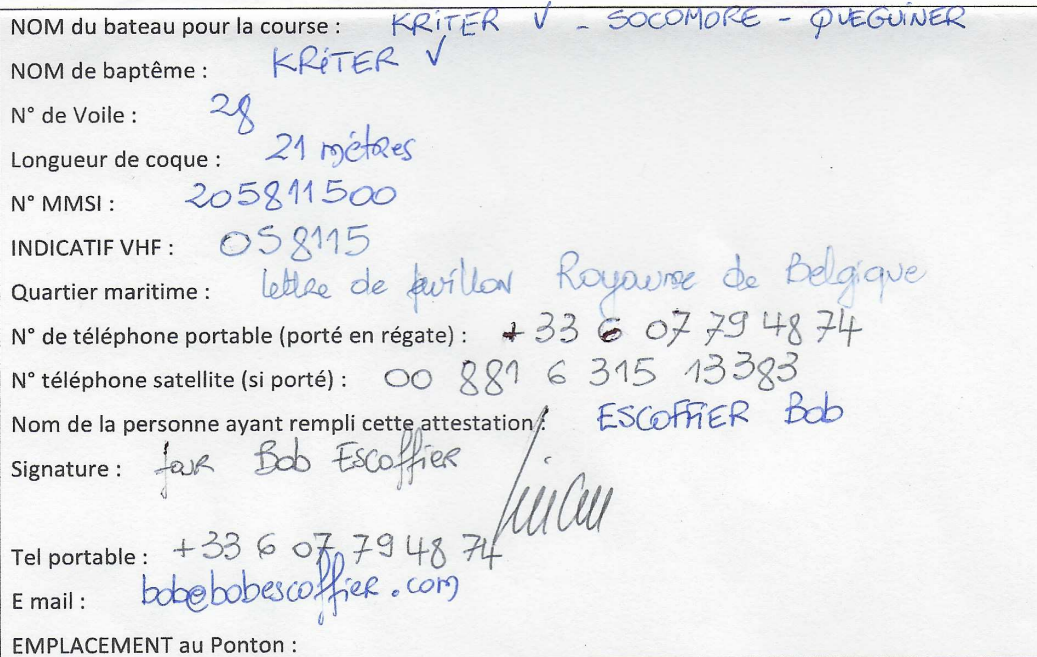 NOM du bateau pour la course : KRITER V - SOCOMORE - QUEGUINER
NOM de baptême : KRITER V
N° de Voile : 28
Longueur de coque : 21 mètres
N° MMSI : 205811500
INDICATIF VHF : 058115
Quartier maritime : lettre de pavillon Royaume de Belgique
N° de téléphone portable (porté en régate) : +33 6 07 79 48 74
N° téléphone satellite (si porté) : 00 881 6 315 13383
Nom de la personne ayant rempli cette attestation : ESCOFFIER Bob
Signature : pour Bob Escoffier
Tel portable : +33 6 07 79 48 74
E mail : bob@bobescoffier.com
EMPLACEMENT au Ponton :